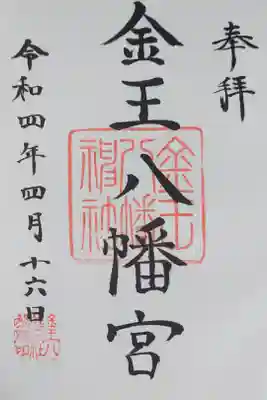 奉拝
金王八幡宮
令和四年四月十六日
金王
八幡
神社